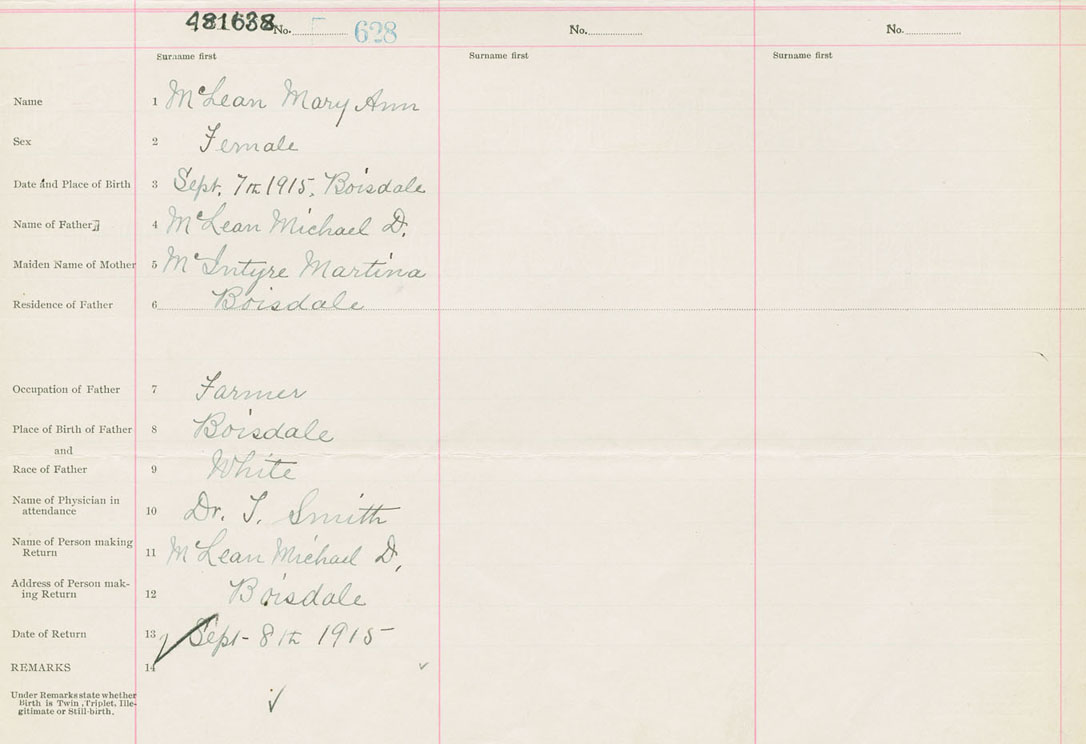 481638 No. 628 No. No.
Surname first Surname first Surname first
Name 1 McLean Mary Ann
Sex 2 Female
Date and Place of Birth 3 Sept. 7th 1915, Boisdale
Name of Father 4 McLean Michael D.
Maiden Name of Mother 5 McIntyre Martina
Residence of Father 6 Boisdale
Occupation of Father 7 Farmer
Place of Birth of Father 8 Boisdale
and
Race of Father 9 White
Name of Physician in
attendance 10 Dr. T. Smith
Name of Person making
Return 11 McLean Michael D,
Address of Person mak-
ing Return 12 Boisdale
Date of Return 13 Sept - 8th 1915
REMARKS 14
Under Remarks state whether
Birth is Twin, Triplet, Ille-
gitimate or Still-birth.